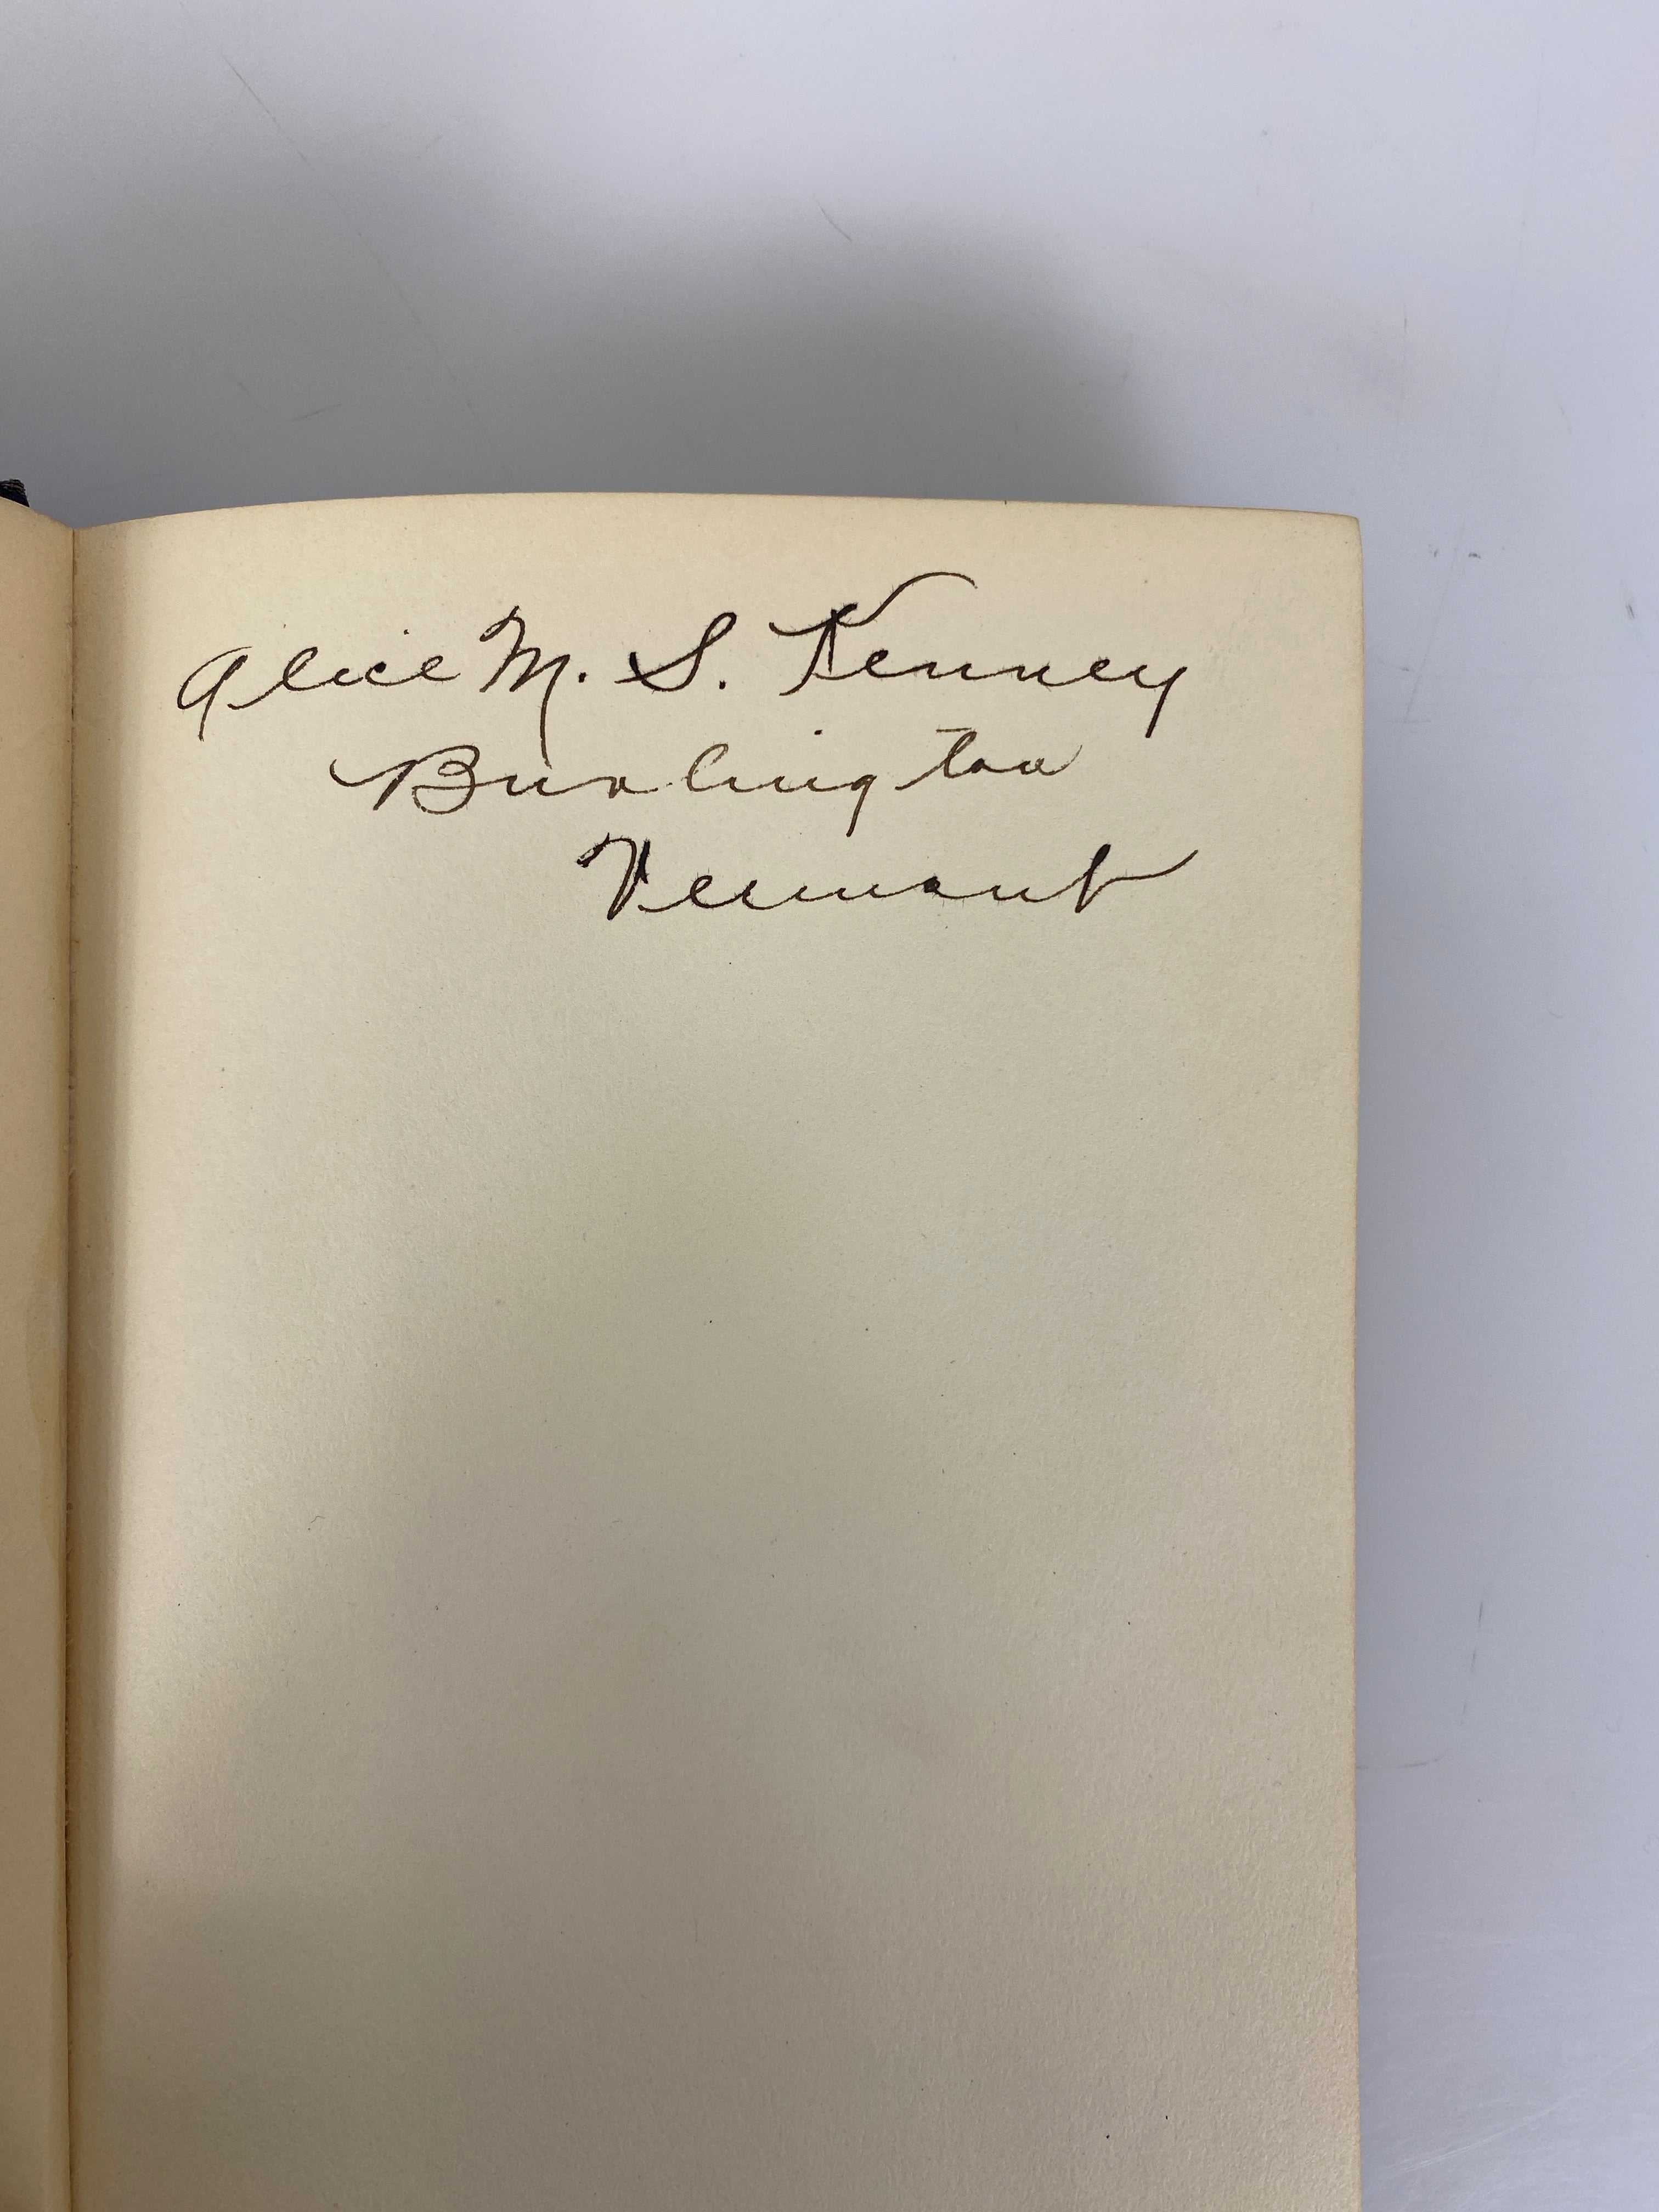 Alice M. S. Kenney
Burlington
Vermont